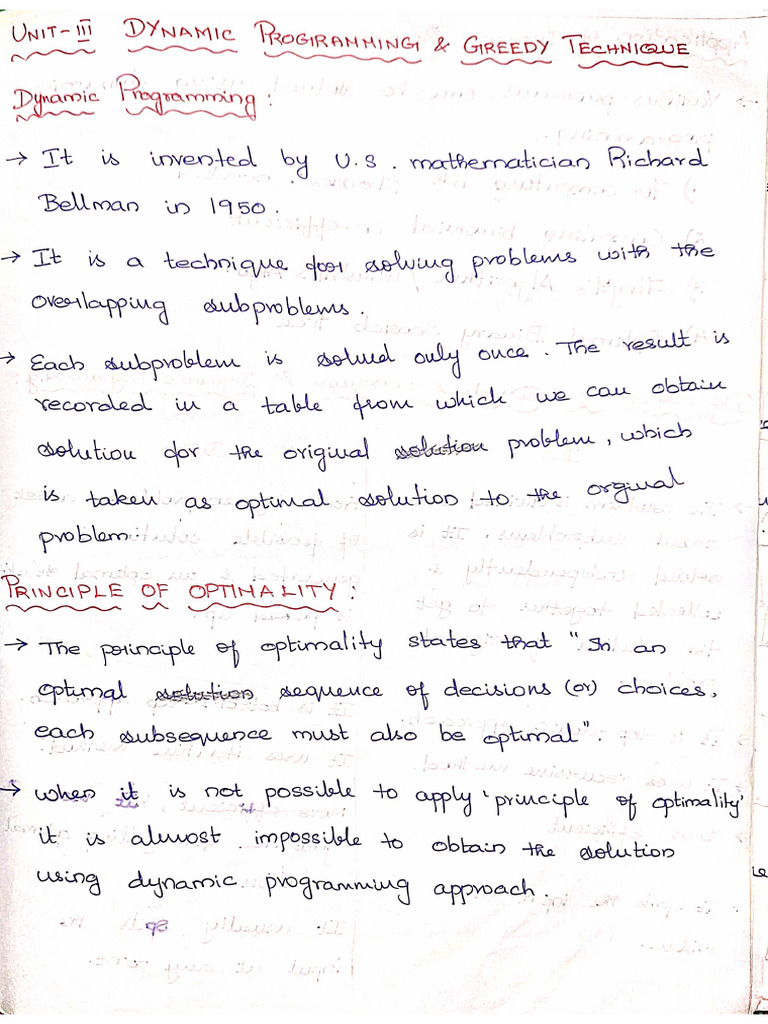 UNIT-III DYNAMIC PROGRAMMING & GREEDY TECHNIQUE
Dynamic Programming:
→ It is invented by U.S. mathematician Richard
Bellman in 1950.
→ It is a technique for solving problems with the
overlapping subproblems.
→ Each subproblem is solved only once. The result is
recorded in a table from which we can obtain
solution for the original solution problem, which
is taken as optimal solution to the orginal
problem.
PRINCIPLE OF OPTIMALITY:
→ The principle of optimality states that "In an
optimal solution sequence of decisions (or) choices,
each subsequence must also be optimal".
→ When it is not possible to apply 'principle of optimality'
it is almost impossible to obtain the solution
using dynamic programming approach.